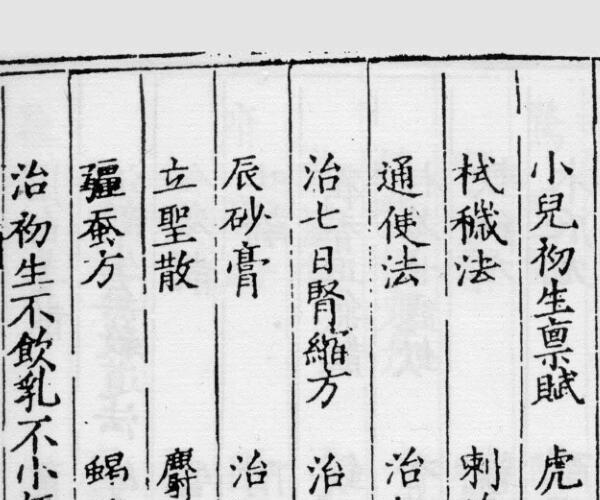 小兒初生禀賦 虎
栻穢法 刺
通使法 治
治七日腎縮方 治
辰砂膏 治
立聖散 麝
疆蚕方 蝎
治初生不飲乳不小